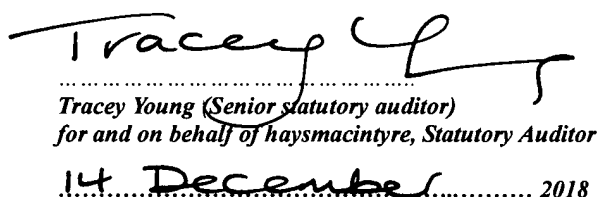 Tracey Y
Tracey Young (Senior statutory auditor)
for and on behalf of haysmacintyre, Statutory Auditor
14 December 2018